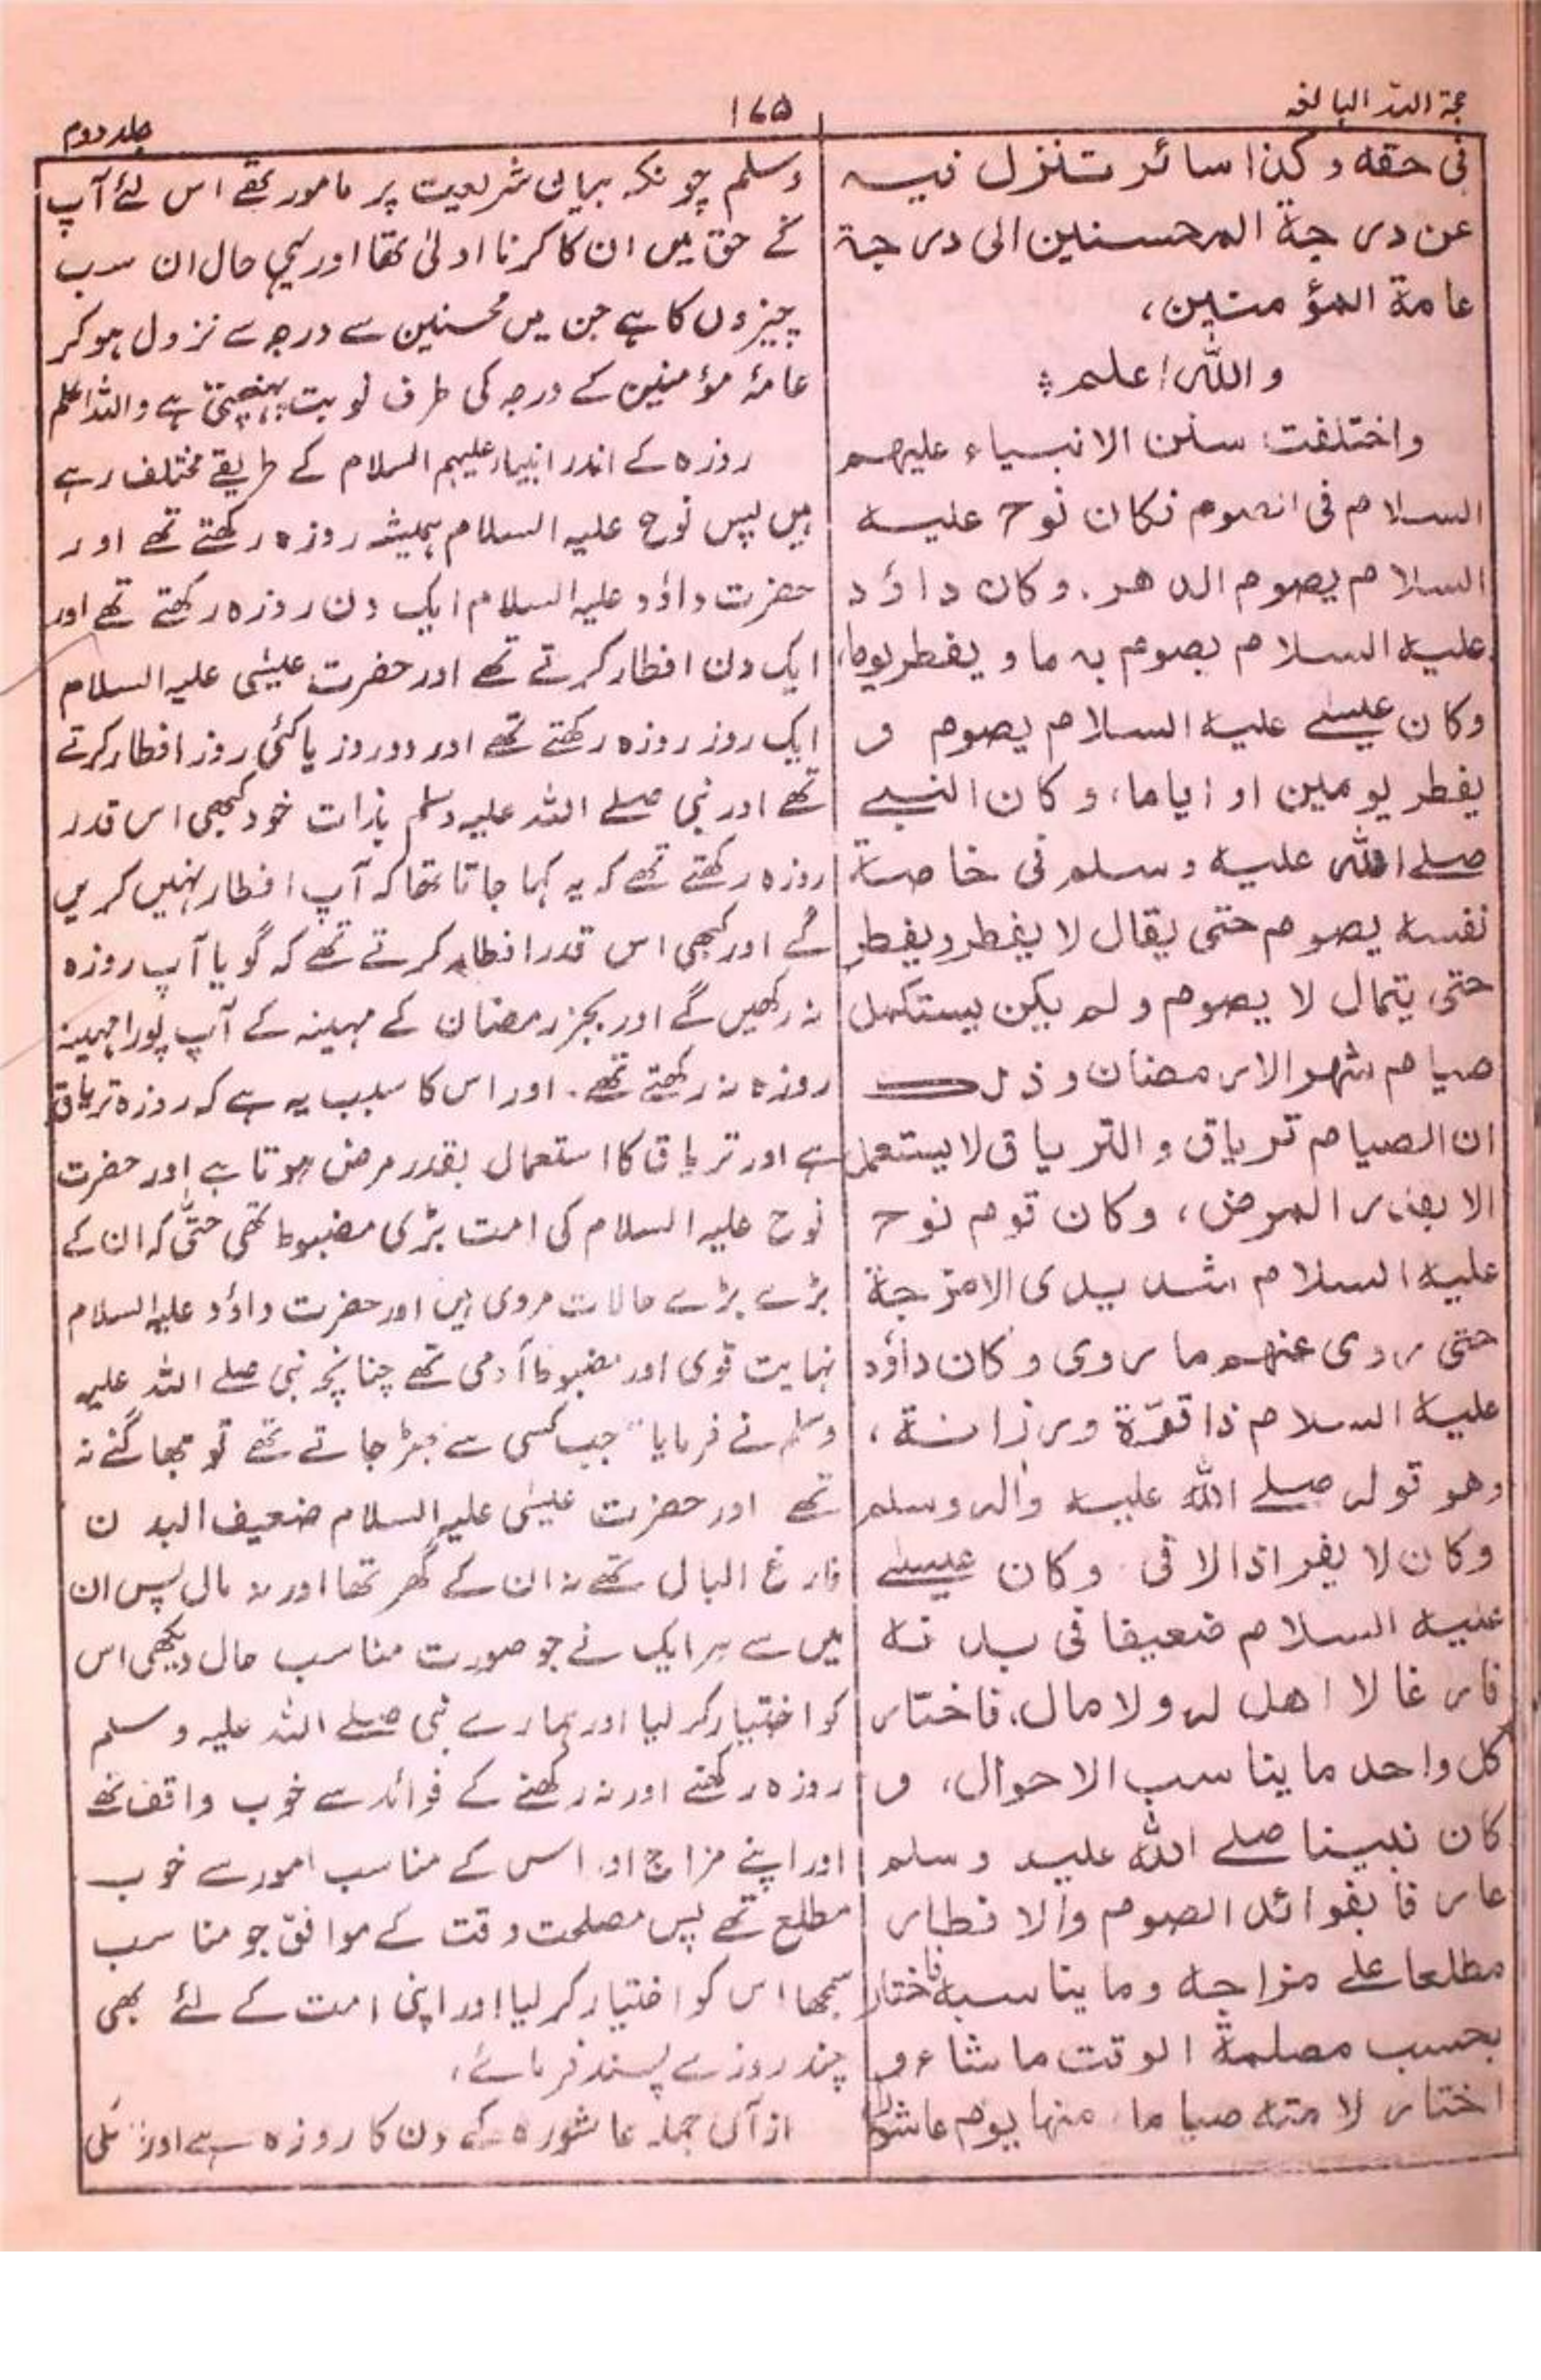 حجۃ اللہ البالغہ
۱۶۵
جلد دوم
فی حقه وکذا سائر تنزل فیه
عن درجة المحسنین الی درجة
عامة المؤمنین،
واللہ اعلم ؛
واختلفت سنن الانبیاء علیهم
السلام فی الصوم فکان نوح علیه
السلام یصوم الدهر. وکان داؤد
علیه السلام یصوم یوما ویفطر یوما،
وکان عیسے علیه السلام یصوم و
یفطر یومین او ایاما، وکان النبے
صلے اللہ علیه وسلم فی خاصة
نفسه یصوم حتی یقال لا یفطر ویفطر
حتی یقال لا یصوم ولم یکن یستکمل
صیام شهر الا رمضان وذلک
ان الصیام تریاق والتریاق لا یستعمل
الا بقدر المرض، وکان قوم نوح
علیه السلام شدیدی الامزجة
حتی روی عنهم ما روی وکان داؤد
علیه السلام ذا قوّة ورزانة،
وهو قوله صلے اللہ علیه واله وسلم
وکان لا یفر اذا لاقی وکان عیسے
علیه السلام ضعیفا فی بدنه
فارغا لا اهل له ولا مال، فاختار
کل واحد ما یناسب الاحوال، و
کان نبینا صلے اللہ علیه وسلم
عارفا بفوائد الصوم والافطار
مطلعا علے مزاجه وما یناسبه فاختار
بحسب مصلحة الوقت ما شاء و
اختار لامته صیاما، منها یوم عاشورا
وسلم چونکہ بیان شریعت پر مامور تھے اس لئے آپ
کے حق میں ان کا کرنا اولیٰ تھا اور یہی حال ان سب
چیزوں کا ہے جن میں محسنین سے درجہ سے نزول ہو کر
عامۂ مؤمنین کے درجہ کی طرف نوبت پہنچتی ہے واللہ اعلم
روزہ کے اندر انبیاء علیہم السلام کے طریقے مختلف رہے
ہیں پس نوح علیہ السلام ہمیشہ روزہ رکھتے تھے اور
حضرت داؤد علیہ السلام ایک دن روزہ رکھتے تھے اور
ایک دن افطار کرتے تھے اور حضرت عیسٰی علیہ السلام
ایک روز روزہ رکھتے تھے اور دو روز یا کئی روز افطار کرتے
تھے اور نبی صلے اللہ علیہ وسلم بذات خود کبھی اس قدر
روزہ رکھتے تھے کہ یہ کہا جاتا تھا کہ آپ افطار نہیں کریں
گے اور کبھی اس قدر افطار کرتے تھے کہ گویا آپ روزہ
نہ رکھیں گے اور بجز رمضان کے مہینہ کے آپ پورا مہینہ
روزہ نہ رکھتے تھے. اور اس کا سبب یہ ہے کہ روزہ تریاق
ہے اور تریاق کا استعمال بقدر مرض ہوتا ہے اور حضرت
نوح علیہ السلام کی امت بڑی مضبوط تھی حتّٰی کہ ان کے
بڑے بڑے حالات مروی ہیں اور حضرت داؤد علیہ السلام
نہایت قوی اور مضبوط آدمی تھے چنانچہ نبی صلے اللہ علیہ
وسلم نے فرمایا "جب کسی سے بھڑ جاتے تھے تو بھاگتے نہ
تھے اور حضرت عیسٰی علیہ السلام ضعیف البدن
فارغ البال تھے نہ ان کے گھر تھا اور نہ مال پس ان
میں سے ہر ایک نے جو صورت مناسب حال دیکھی اس
کو اختیار کر لیا اور ہمارے نبی صلے اللہ علیہ وسلم
روزہ رکھنے اور نہ رکھنے کے فوائد سے خوب واقف تھے
اور اپنے مزاج اور اس کے مناسب امور سے خوب
مطلع تھے پس مصلحت وقت کے موافق جو مناسب
سمجھا اس کو اختیار کر لیا اور اپنی امت کے لئے بھی
چند روزے پسند فرمائے،
از آں جملہ عاشورہ کے دن کا روزہ ہے اور